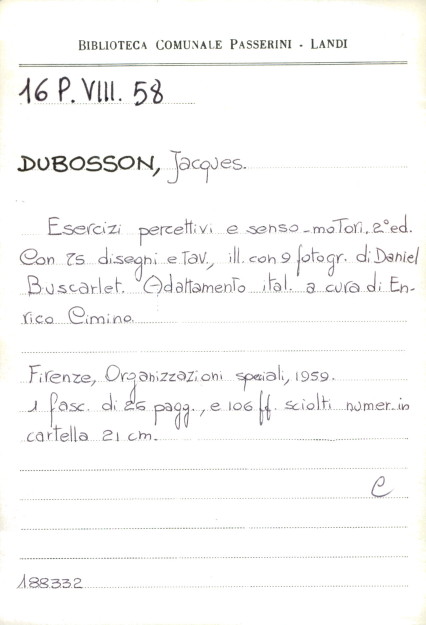 BIBLIOTECA COMUNALE PASSERINI - LANDI
16 P. VIII. 58
DUBOSSON, Jacques.
Esercizi percettivi e senso-motori. 2° ed.
Con 75 disegni e tav., ill. con 9 fotogr. di Daniel
Buscarlet. Adattamento ital. a cura di En-
rico Cimino.
Firenze, Organizzazioni speciali, 1959.
1 fasc. di 26 pagg., e 106 ff. sciolti numer. in
cartella 21 cm.
C
188332